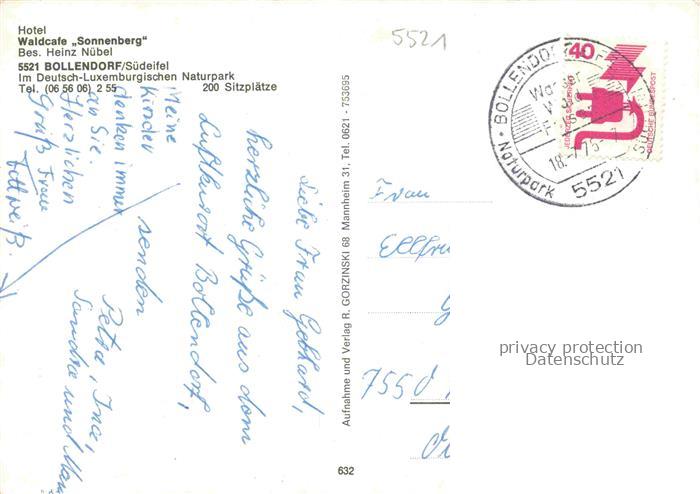 Hotel
Waldcafe „Sonnenberg"
Bes. Heinz Nübel
5521 BOLLENDORF/Südeifel
Im Deutsch-Luxemburgischen Naturpark
Tel. (06 56 06) 2 55 200 Sitzplätze
5521
Liebe Frau Gothard,
herzliche Grüße aus dem
Luftkurort Bollendorf,
senden
Petra, Ines,
Sandra und
Meine
Kinder
denken immer
an Sie.
Herzlichen
Gruß Frau
Fettweiß.
Aufnahme und Verlag R. GORZINSKI 68 Mannheim 31, Tel. 0621 - 753695
632
Frau
Ellfri
755
40
JEDERZEIT SICHERHEIT
DEUTSCHE BUNDESPOST
BOLLENDORF
Naturpark
5521
privacy protection
Datenschutz